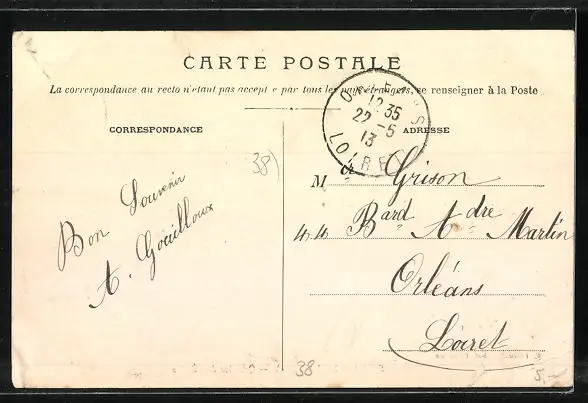 CARTE POSTALE
La correspondance au recto n'étant pas accept e par tous les pays étrangers, se renseigner à la Poste
CORRESPONDANCE
ADRESSE
12 35
22 - 5
13
LOIRE
38)
Bon Souvenir
A. Gouilloux
M Grison
44 Bard Adre Martin
Orléans
Loiret
38
5,-